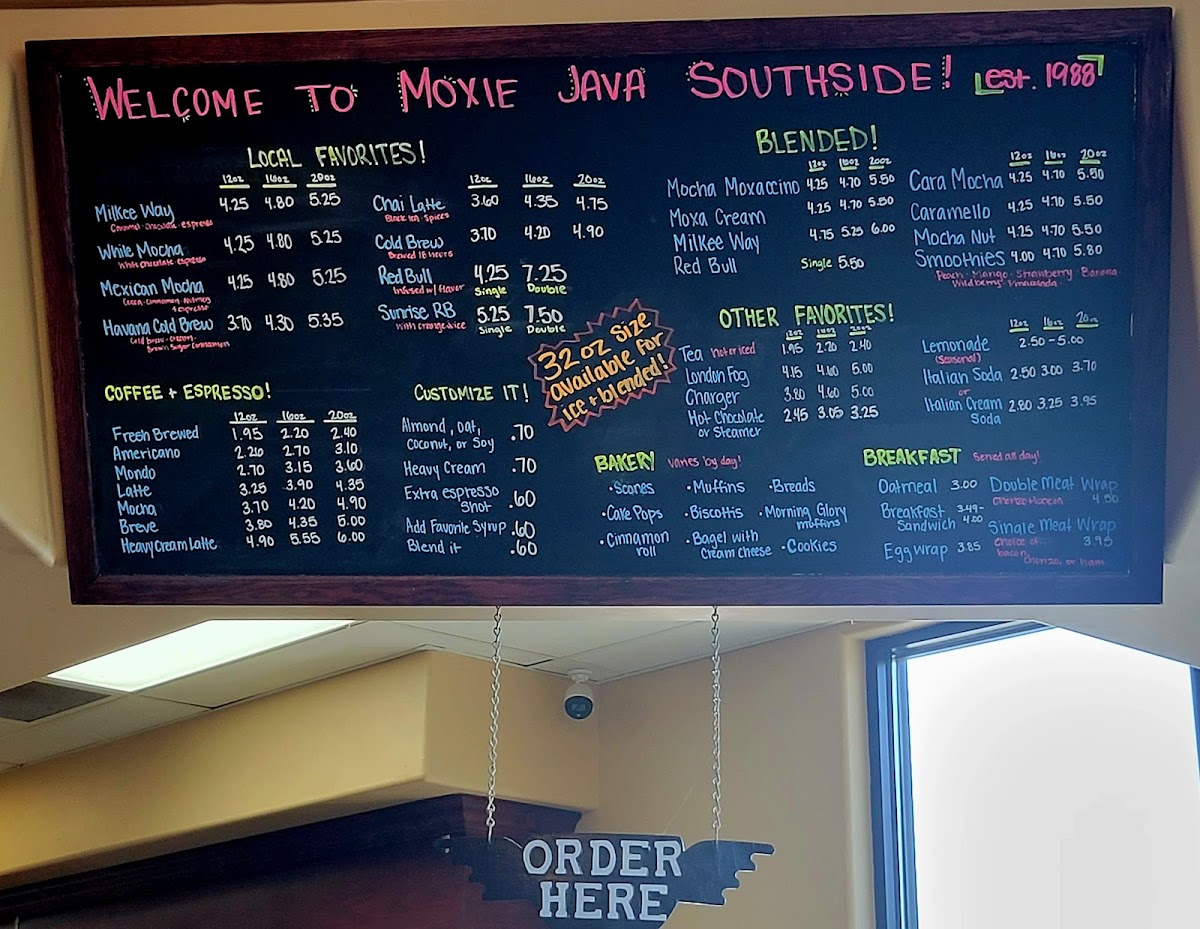 WELCOME TO MOXIE JAVA SOUTHSIDE! est. 1988
LOCAL FAVORITES!
12oz 16oz 20oz
Milkee Way 4.25 4.80 5.25
Caramel-chocolate-espresso
White Mocha 4.25 4.80 5.25
White chocolate-espresso
Mexican Mocha 4.25 4.80 5.25
Cocoa-Cinnamon-Nutmeg
+ espresso
Havana Cold Brew 3.70 4.30 5.35
Cold brew-cream-
Brown Sugar Cinnamon
12oz 16oz 20oz
Chai Latte 3.60 4.35 4.75
Black tea-Spices
Cold Brew 3.70 4.20 4.90
Brewed 18 hours
Red Bull 4.25 7.25
Infused w/ flavor Single Double
Sunrise RB 5.25 7.50
With orange juice Single Double
32 oz Size
available for
ice + blended!
COFFEE + ESPRESSO!
12oz 16oz 20oz
Fresh Brewed 1.95 2.20 2.40
Americano 2.20 2.70 3.10
Mondo 2.70 3.15 3.60
Latte 3.25 3.90 4.35
Mocha 3.70 4.20 4.90
Breve 3.80 4.35 5.00
Heavy Cream Latte 4.90 5.55 6.00
CUSTOMIZE IT!
Almond, oat,
coconut, or Soy .70
Heavy Cream .70
Extra espresso
Shot .60
Add Favorite Syrup .60
Blend it .60
BLENDED!
12oz 16oz 20oz
Mocha Moxaccino 4.25 4.70 5.50
Moxa Cream 4.25 4.70 5.50
Milkee Way 4.75 5.25 6.00
Red Bull Single 5.50
12oz 16oz 20oz
Cara Mocha 4.25 4.70 5.50
Caramello 4.25 4.70 5.50
Mocha Nut 4.25 4.70 5.50
Smoothies 4.00 4.70 5.80
Peach-Mango-Strawberry-Banana
Wildberry-Pinacolada
OTHER FAVORITES!
12oz 16oz 20oz
Tea hot or iced 1.95 2.20 2.40
London Fog 4.15 4.60 5.00
Charger 3.80 4.60 5.00
Hot Chocolate
or Steamer 2.45 3.05 3.25
12oz 16oz 20oz
Lemonade 2.50-5.00
(Seasonal)
Italian Soda 2.50 3.00 3.70
or
Italian Cream
Soda 2.80 3.25 3.95
BAKERY Varies by day!
•Scones •Muffins •Breads
•Cake Pops •Biscottis •Morning Glory
muffins
•Cinnamon
roll
•Bagel with
Cream cheese
•Cookies
BREAKFAST Served all day!
Oatmeal 3.00
Breakfast
Sandwich 3.49-
4.00
Egg wrap 3.85
Double Meat Wrap
4.50
Single Meat Wrap
Choice of: 3.95
bacon,
Chorizo, or Ham
ORDER
HERE